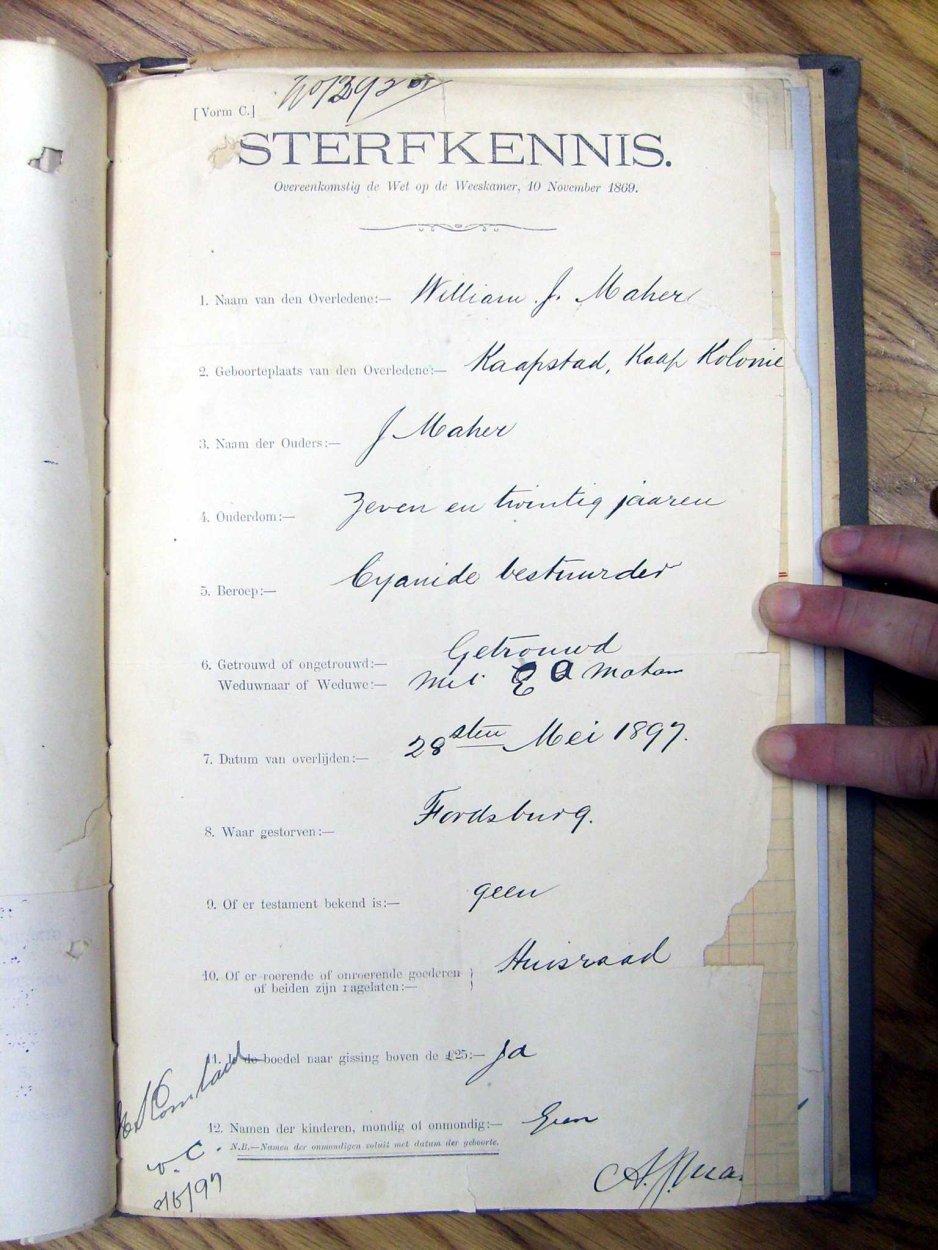 [Vorm C.]
STERFKENNIS.
Overeenkomstig de Wet op de Weeskamer, 10 November 1869.
1. Naam van den Overledene:— William J. Maher
2. Geboorteplaats van den Overledene:— Kaapstad, Kaap Kolonie
3. Naam der Ouders:— J Maher
4. Ouderdom:— Zeven en twintig jaaren
5. Beroep:— Cyanide bestuurder
6. Getrouwd of ongetrouwd:— Getrouwd
Weduwnaar of Weduwe:— met E A
7. Datum van overlijden:— 28sten Mei 1897.
8. Waar gestorven:— Fordsburg.
9. Of er testament bekend is:— geen
10. Of er roerende of onroerende goederen } Huisraad
of beiden zijn nagelaten:—
11. Is de boedel naar gissing boven de £25:— Ja
12. Namen der kinderen, mondig of onmondig:— Geen
N.B.—Namen der onmondigen voluit met datum der geboorte.